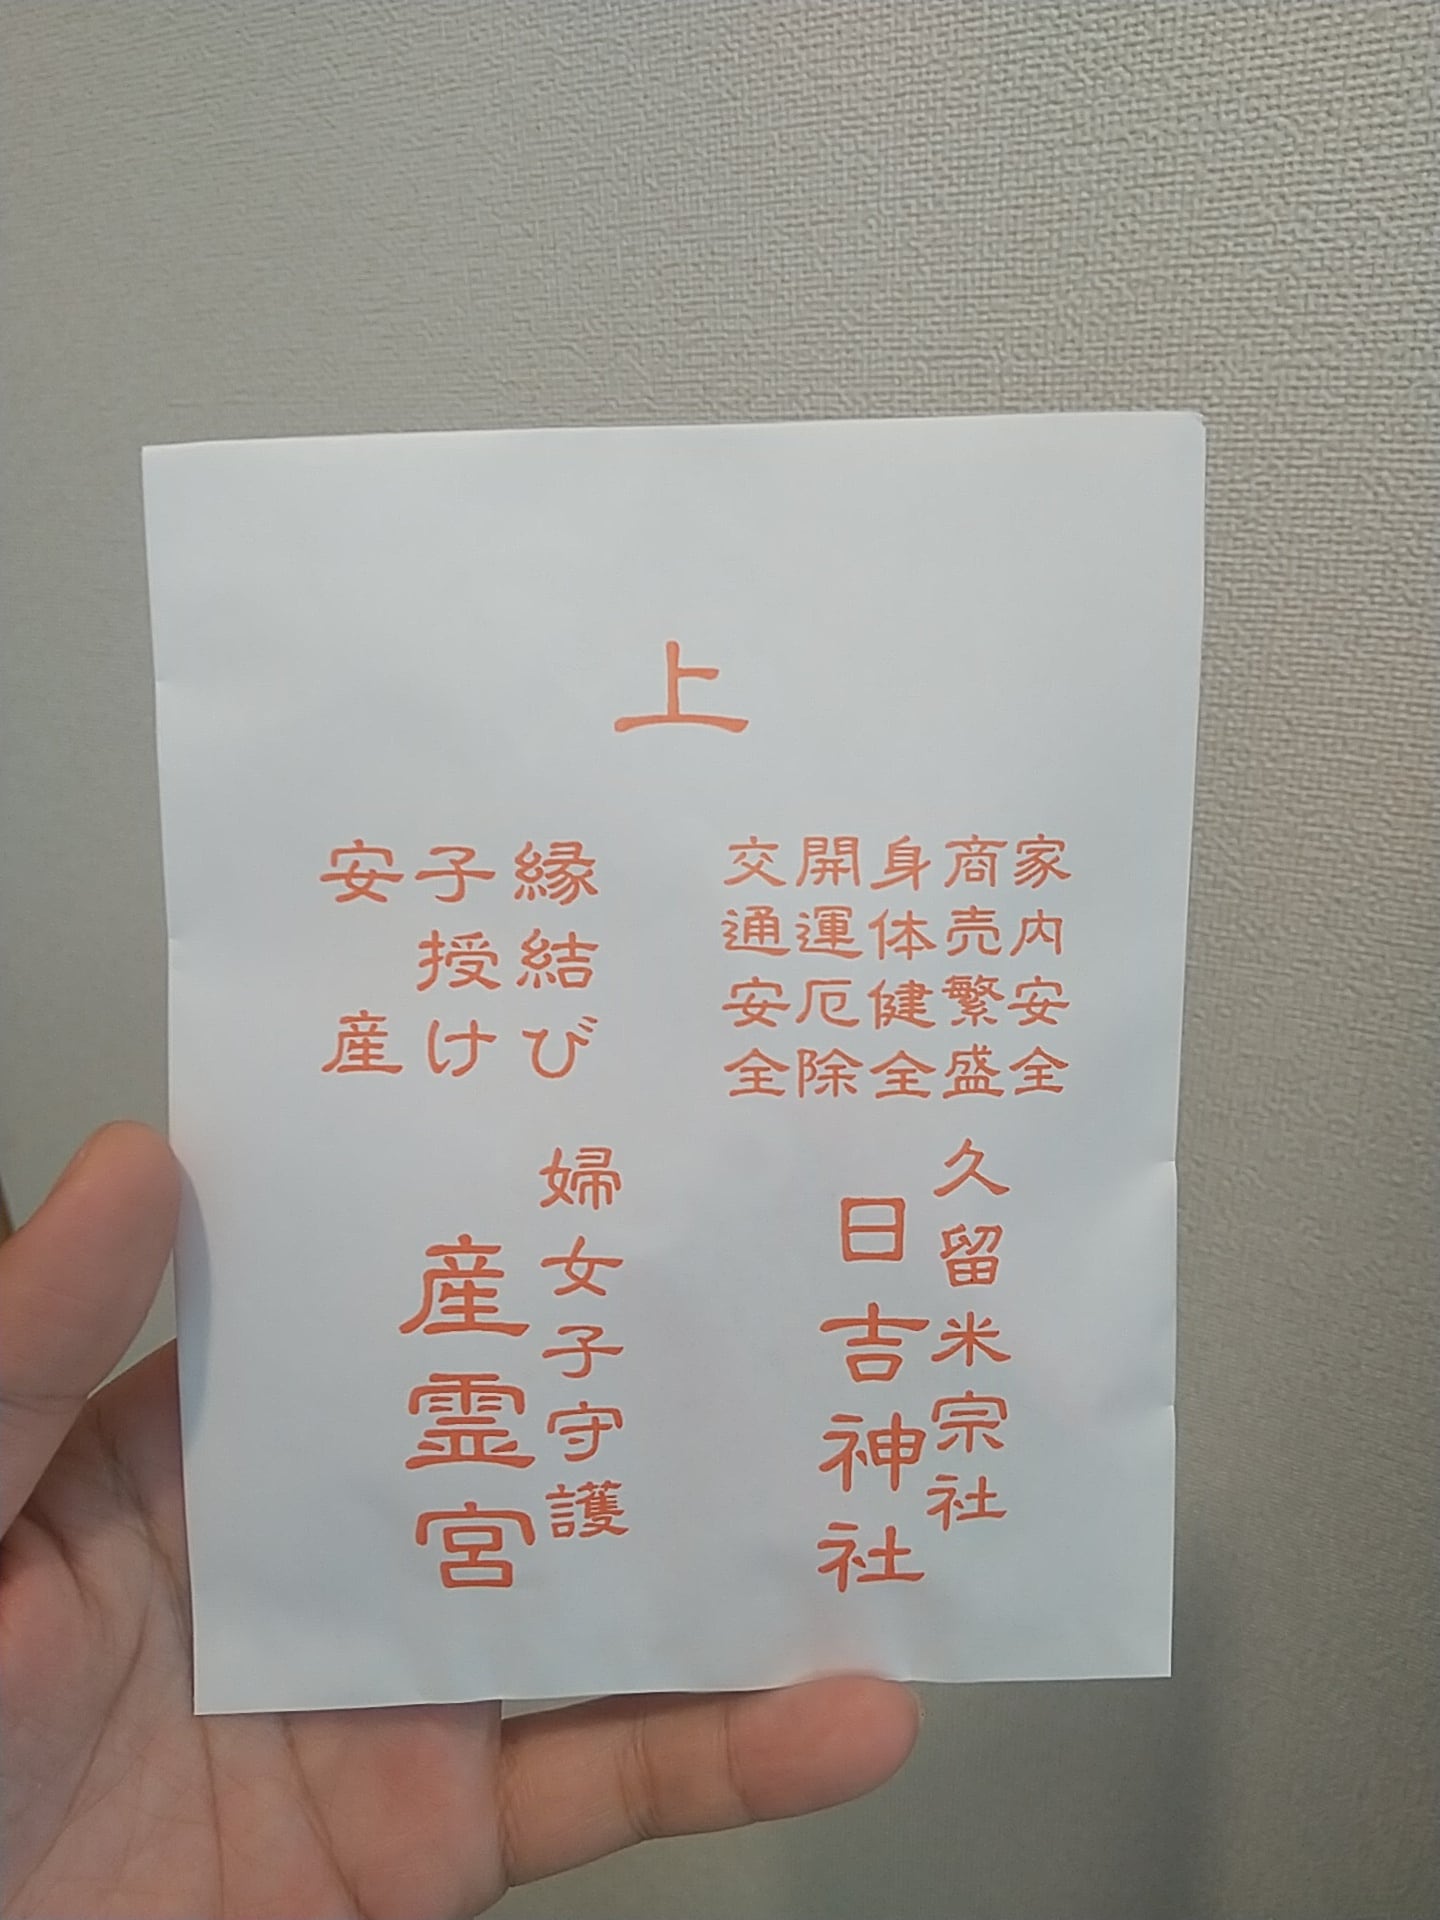 上
家内安全
商売繁盛
身体健全
開運厄除
交通安全
久留米宗社
日吉神社
縁結び
子授け
安産
婦女子守護
産霊宮